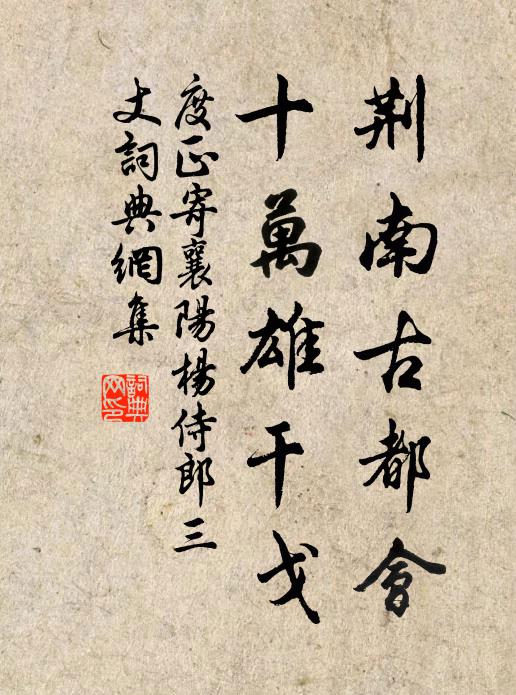 荆南古都會
十萬雄干戈
度正寄襄陽楊侍郎三
丈詞典網集
詞典
网印